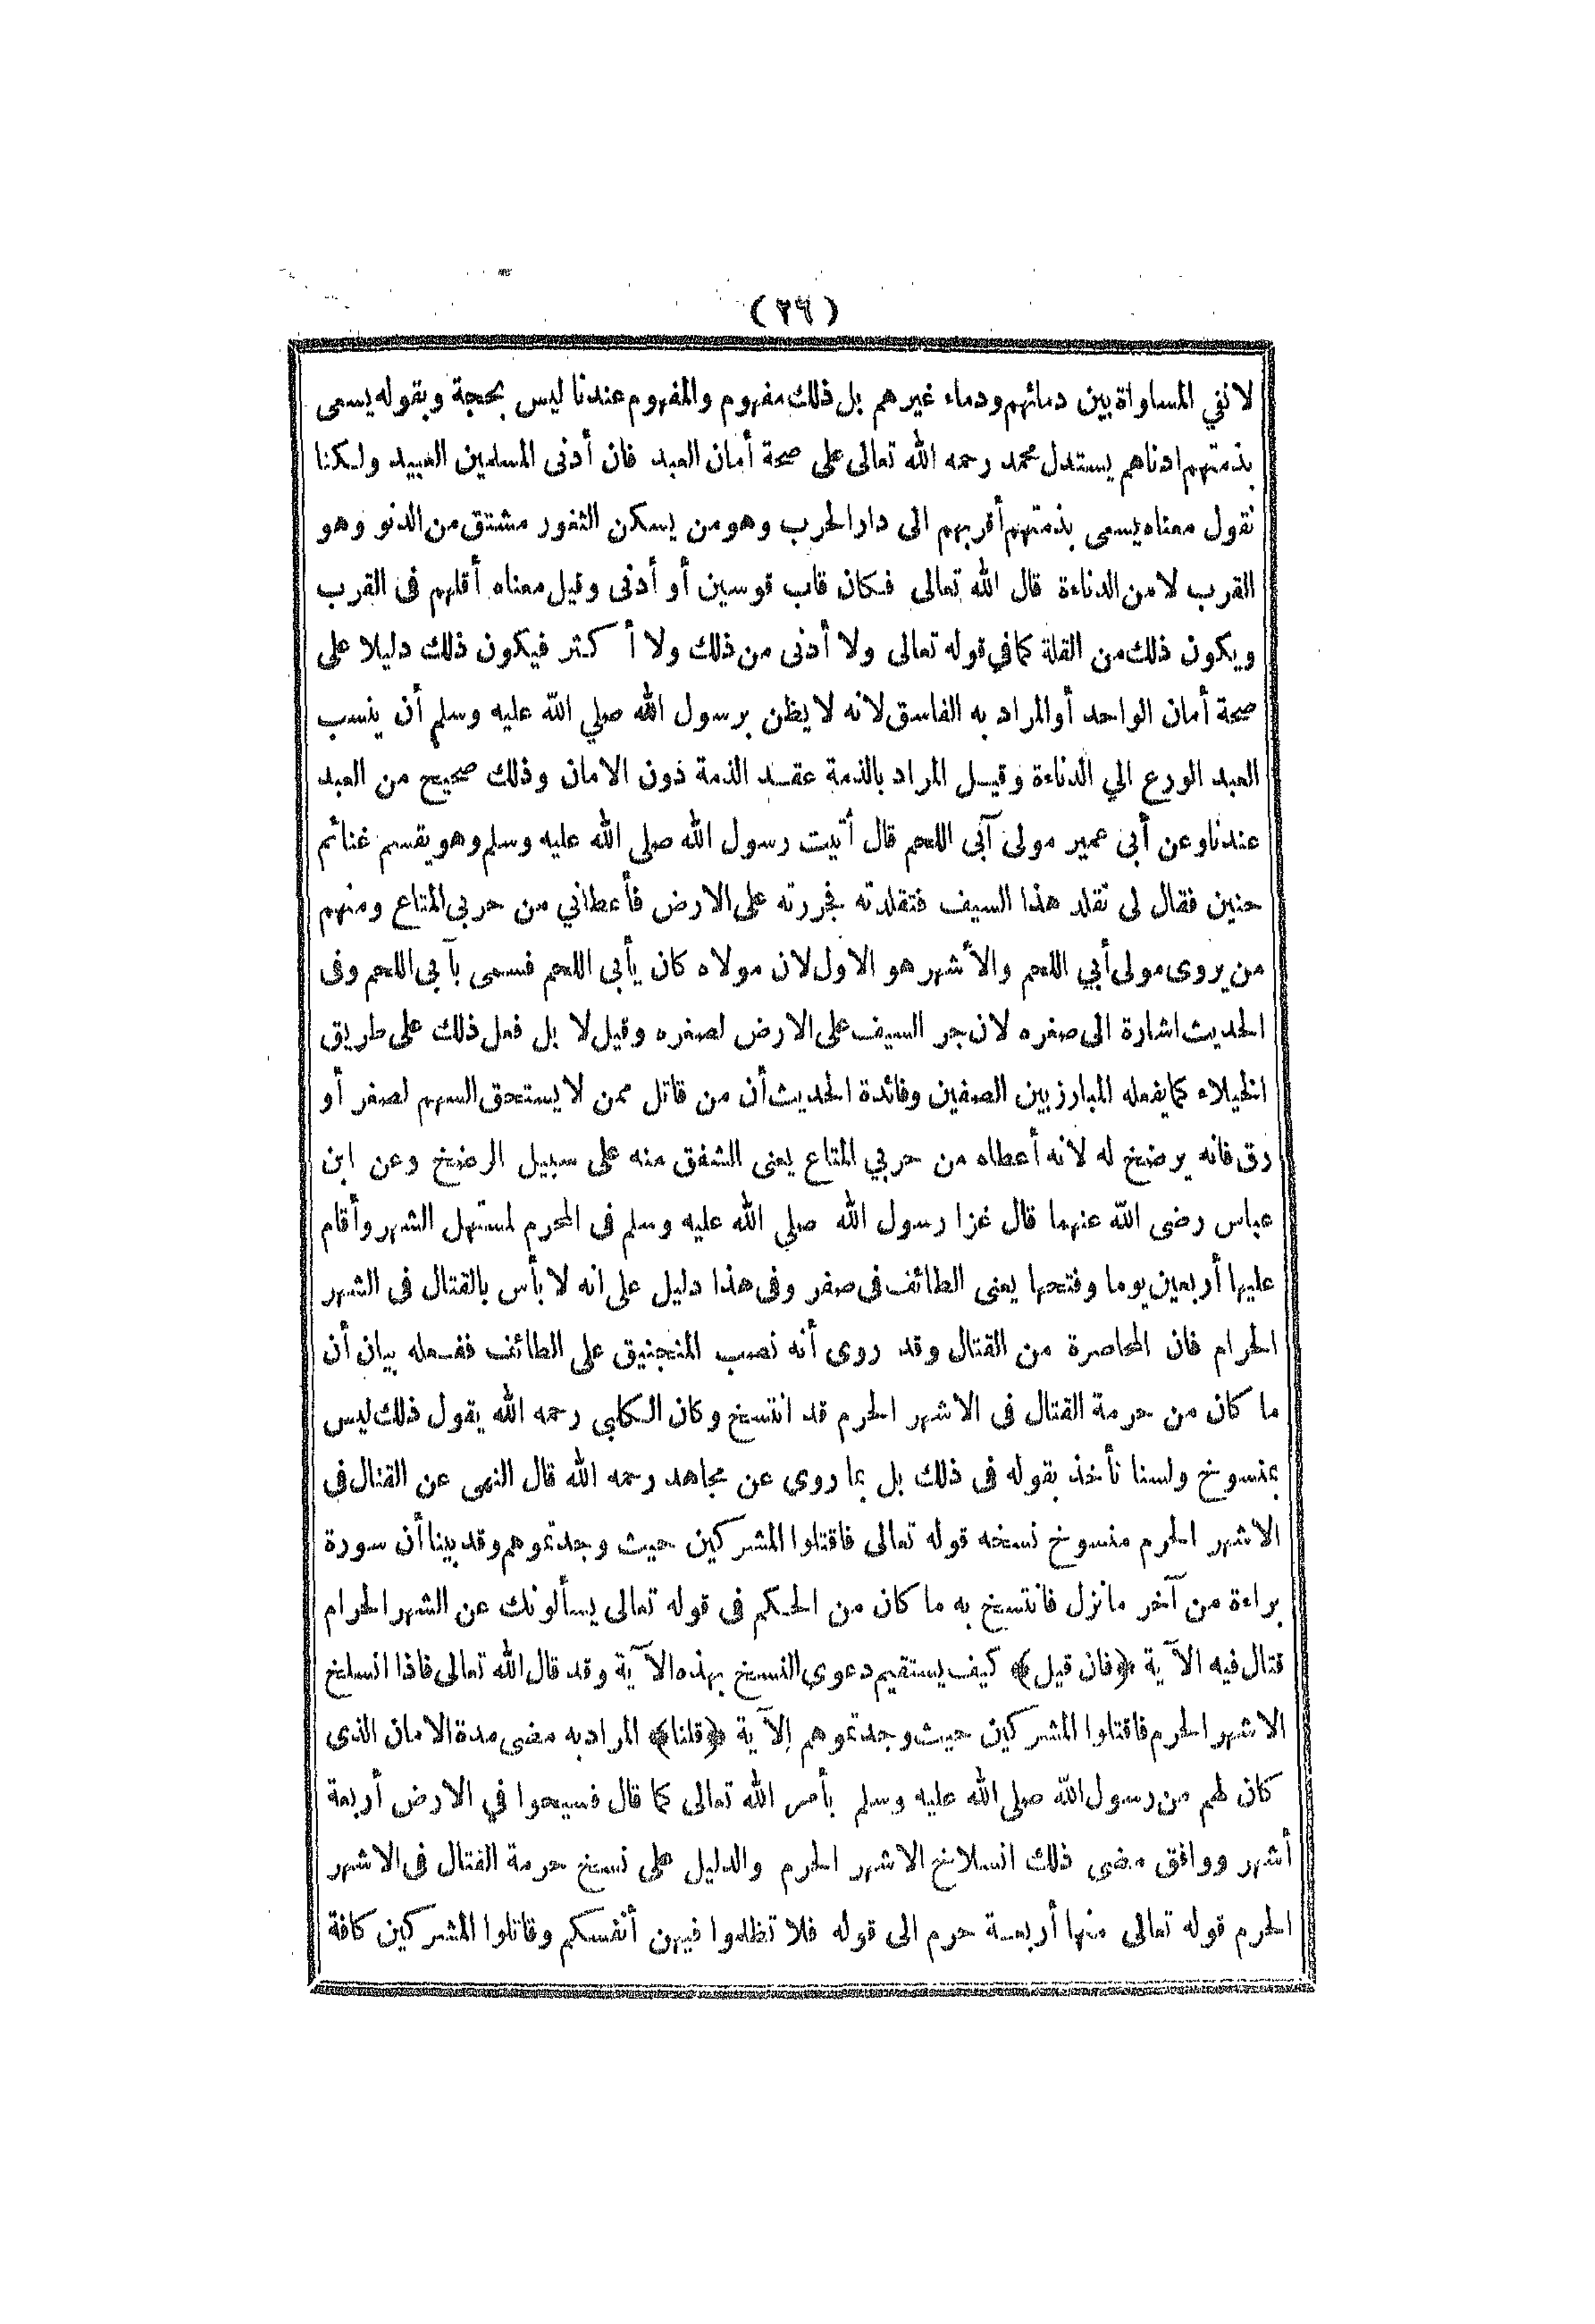 (٢٦)
لا نفي المساواة بين دمائهم ودماء غيرهم بل ذلك مفهوم والمفهوم عندنا ليس بحجة وبقوله يسعى
بذمتهم ادناهم يستدل محمد رحمه الله تعالى على صحة أمان العبد فان أدنى المسلمين العبيد ولكنا
نقول معناه يسعى بذمتهم أقربهم الى دار الحرب وهو من يسكن الثغور مشتق من الدنو وهو
القرب لا من الدناءة قال الله تعالى فكان قاب قوسين أو أدنى وقيل معناه أقلهم فى القرب
ويكون ذلك من القلة كما في قوله تعالى ولا أدنى من ذلك ولا أكثر فيكون ذلك دليلا على
صحة أمان الواحد أو المراد به الفاسق لانه لا يظن برسول الله صلي الله عليه وسلم أن ينسب
العبد الورع الي الدناءة وقيل المراد بالذمة عقد الذمة دون الامان وذلك صحيح من العبد
عندنا وعن أبى عمير مولى آبى اللحم قال أتيت رسول الله صلى الله عليه وسلم وهو يقسم غنائم
حنين فقال لى تقلد هذا السيف فتقلدته فجررته على الارض فأعطاني من حربى المتاع ومنهم
من يروى مولى أبي اللحم والأشهر هو الاول لان مولاه كان يأبى اللحم فسمى بآبى اللحم وفى
الحديث اشارة الى صغره لان جر السيف على الارض لصغره وقيل لا بل فعل ذلك على طريق
الخيلاء كما يفعله المبارز بين الصفين وفائدة الحديث أن من قاتل ممن لا يستحق السهم لصغر أو
رق فانه يرضخ له لانه أعطاه من حربي المتاع يعنى الشفق منه على سبيل الرضخ وعن ابن
عباس رضى الله عنهما قال غزا رسول الله صلي الله عليه وسلم فى المحرم لمستهل الشهر وأقام
عليها أربعين يوما وفتحها يعنى الطائف فى صفر وفى هذا دليل على انه لا بأس بالقتال فى الشهر
الحرام فان المحاصرة من القتال وقد روى أنه نصب المنجنيق على الطائف ففعله بيان أن
ما كان من حرمة القتال فى الاشهر الحرم قد انتسخ وكان الكلبى رحمه الله يقول ذلك ليس
بمنسوخ ولسنا نأخذ بقوله فى ذلك بل بما روى عن مجاهد رحمه الله قال النهى عن القتال فى
الاشهر الحرم منسوخ نسخه قوله تعالى فاقتلوا المشركين حيث وجدتموهم وقد بينا أن سورة
براءة من آخر ما نزل فانتسخ به ما كان من الحكم فى قوله تعالى يسألونك عن الشهر الحرام
قتال فيه الآية ﴿فان قيل﴾ كيف يستقيم دعوى النسخ بهذه الآية وقد قال الله تعالى فاذا انسلخ
الاشهر الحرم فاقتلوا المشركين حيث وجدتموهم الآية ﴿قلنا﴾ المراد به مضى مدة الامان الذى
كان لهم من رسول الله صلى الله عليه وسلم بأمر الله تعالى كما قال فسيحوا في الارض أربعة
أشهر ووافق مضى ذلك انسلاخ الاشهر الحرم والدليل على نسخ حرمة القتال فى الاشهر
الحرم قوله تعالى منها أربعة حرم الى قوله فلا تظلموا فيهن أنفسكم وقاتلوا المشركين كافة